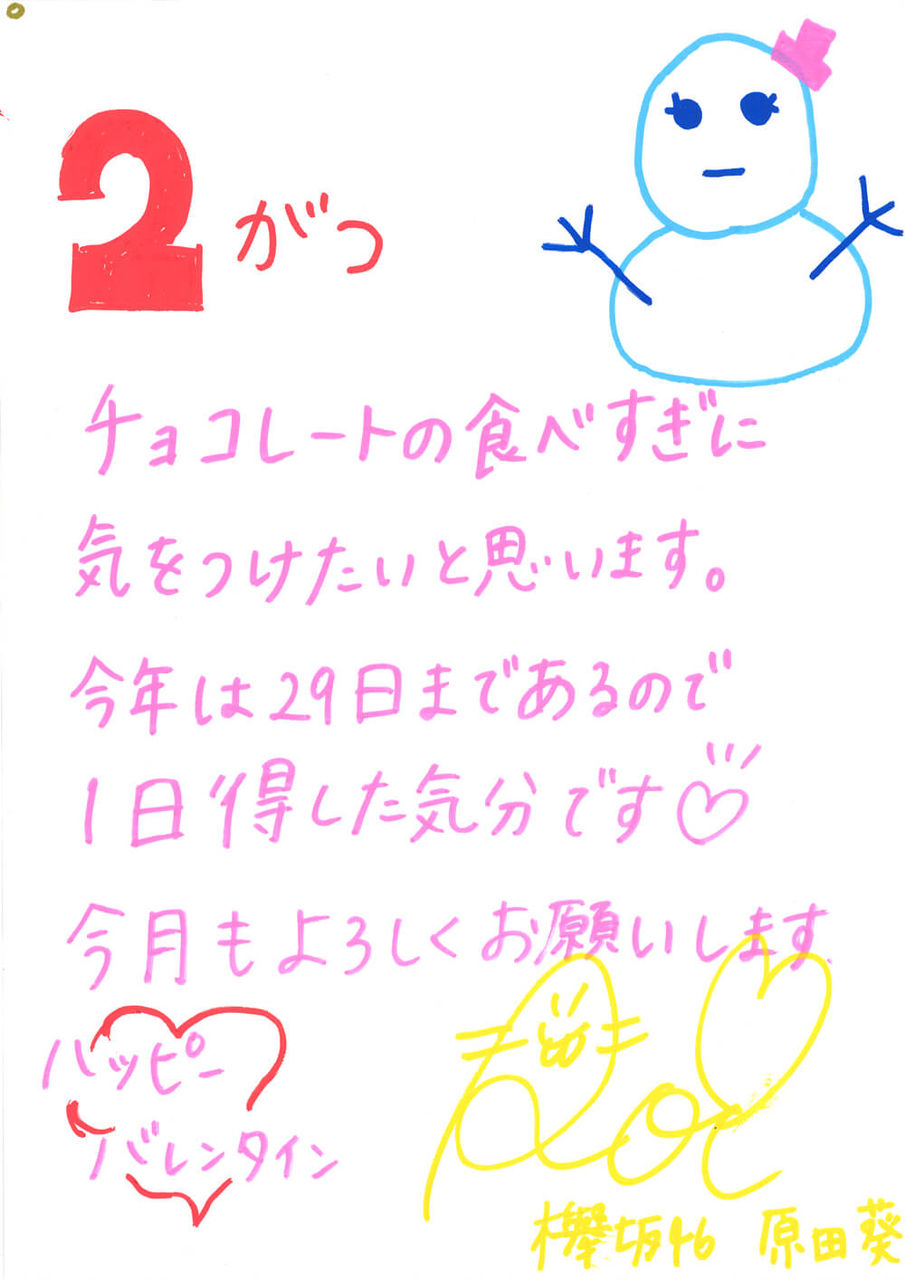 2がつ
チョコレートの食べすぎに
気をつけたいと思います。
今年は29日まであるので
1日得した気分です♡
今月もよろしくお願いします.
ハッピー
バレンタイン
欅坂46 原田葵